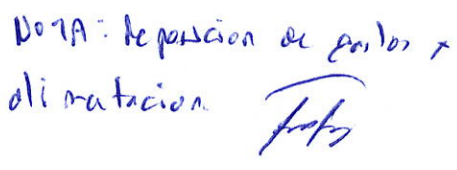 NOTA: Reposicion de gastos x
alimentacion